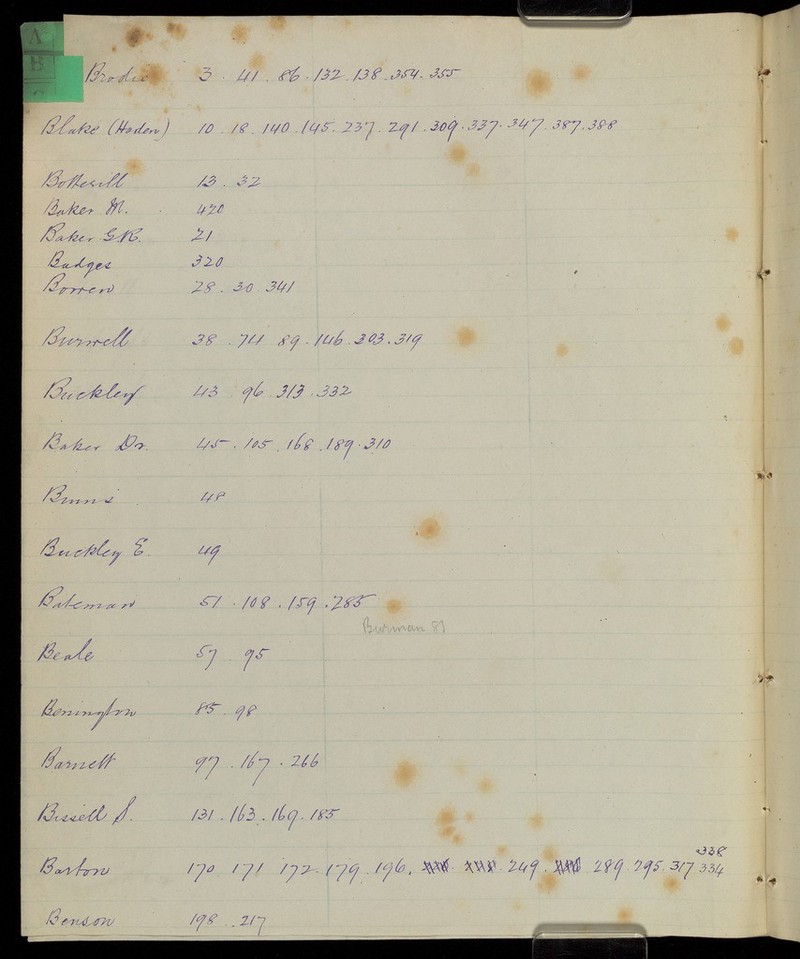 A
B
C
Brodie 3 . 41 . 86 . 132 . 138 . 354 . 355
Blake (Haden) 10 . 18 . 140 . 145 . 237 . 291 . 309 . 337 . 347 . 387 . 388
Botterill 13 . 32
Baker M. 420
Baker G.R. 21
Badges 320
Borren 28 . 30 . 341
Burwell 38 . 74 89 . 146 . 203 . 319
Buckley 43 96 313 . 332
Baker Dr. 45 . 105 . 168 . 189 . 310
Binns 48
Buckley E 49
Bateman 51 . 108 . 159 . 285
Burman 81
Beale 57 95
Benington 85 . 98
Barnett 97 . 167 . 266
Bissell S. 131 . 163 . 169 . 185
338
Barton 170 171 172 . 179 . 196 . 249 . 289 . 295 . 317 334
Benson 198 . . 217